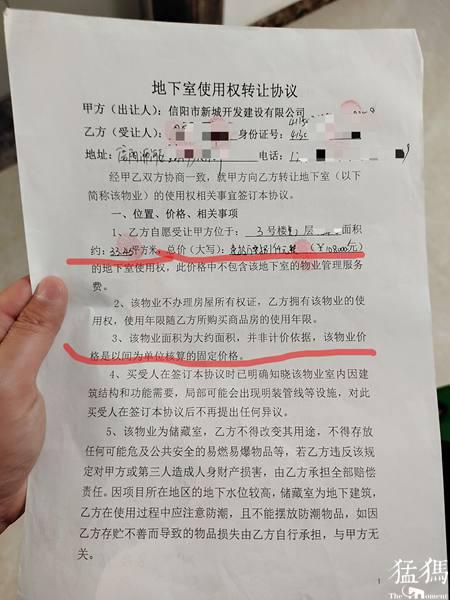 地下室使用权转让协议
甲方（出让人）：信阳市新城开发建设有限公司
乙方（受让人）： 身份证号：
地址： 电话：
经甲乙双方协商一致，就甲方向乙方转让地下室（以下
简称该物业）的使用权相关事宜签订本协议。
一、位置、价格、相关事项
1、乙方自愿受让甲方位于： 3号楼 层 面积
约： 平方米，总价（大写）： （￥108000元）
的地下室使用权，此价格中不包含该地下室的物业管理服务
费。
2、该物业不办理房屋所有权证，乙方拥有该物业的使
用权，使用年限随乙方所购买商品房的使用年限。
3、该物业面积为大约面积，并非计价依据，该物业价
格是以间为单位核算的固定价格。
4、买受人在签订本协议时已明确知晓该物业室内因建
筑结构和功能需要，局部可能会出现明装管线等设施，对此
买受人在签订本协议后不再提出任何异议。
5、该物业为储藏室，乙方不得改变其用途，不得存放
任何可能危及公共安全的易燃易爆物品等，若乙方违反该规
定对甲方或第三人造成人身财产损害，由乙方承担全部赔偿
责任。因项目所在地区的地下水位较高，储藏室为地下建筑，
乙方在使用过程中应注意防潮，且不能摆放防潮物品，如因
乙方存贮不善而导致的物品损失由乙方自行承担，与甲方无
关。
1
猛犸
The Moment